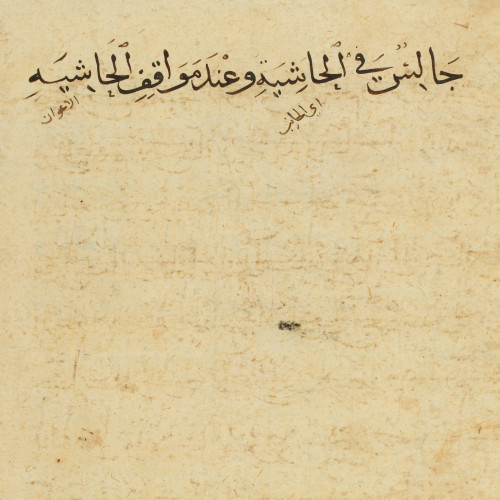 جَالِسٌ فِي الْحَاشِيَةِ وَعِنْدَ مَوَاقِفِ الْحَاشِيَهِ
اي الجانب
الاعوان